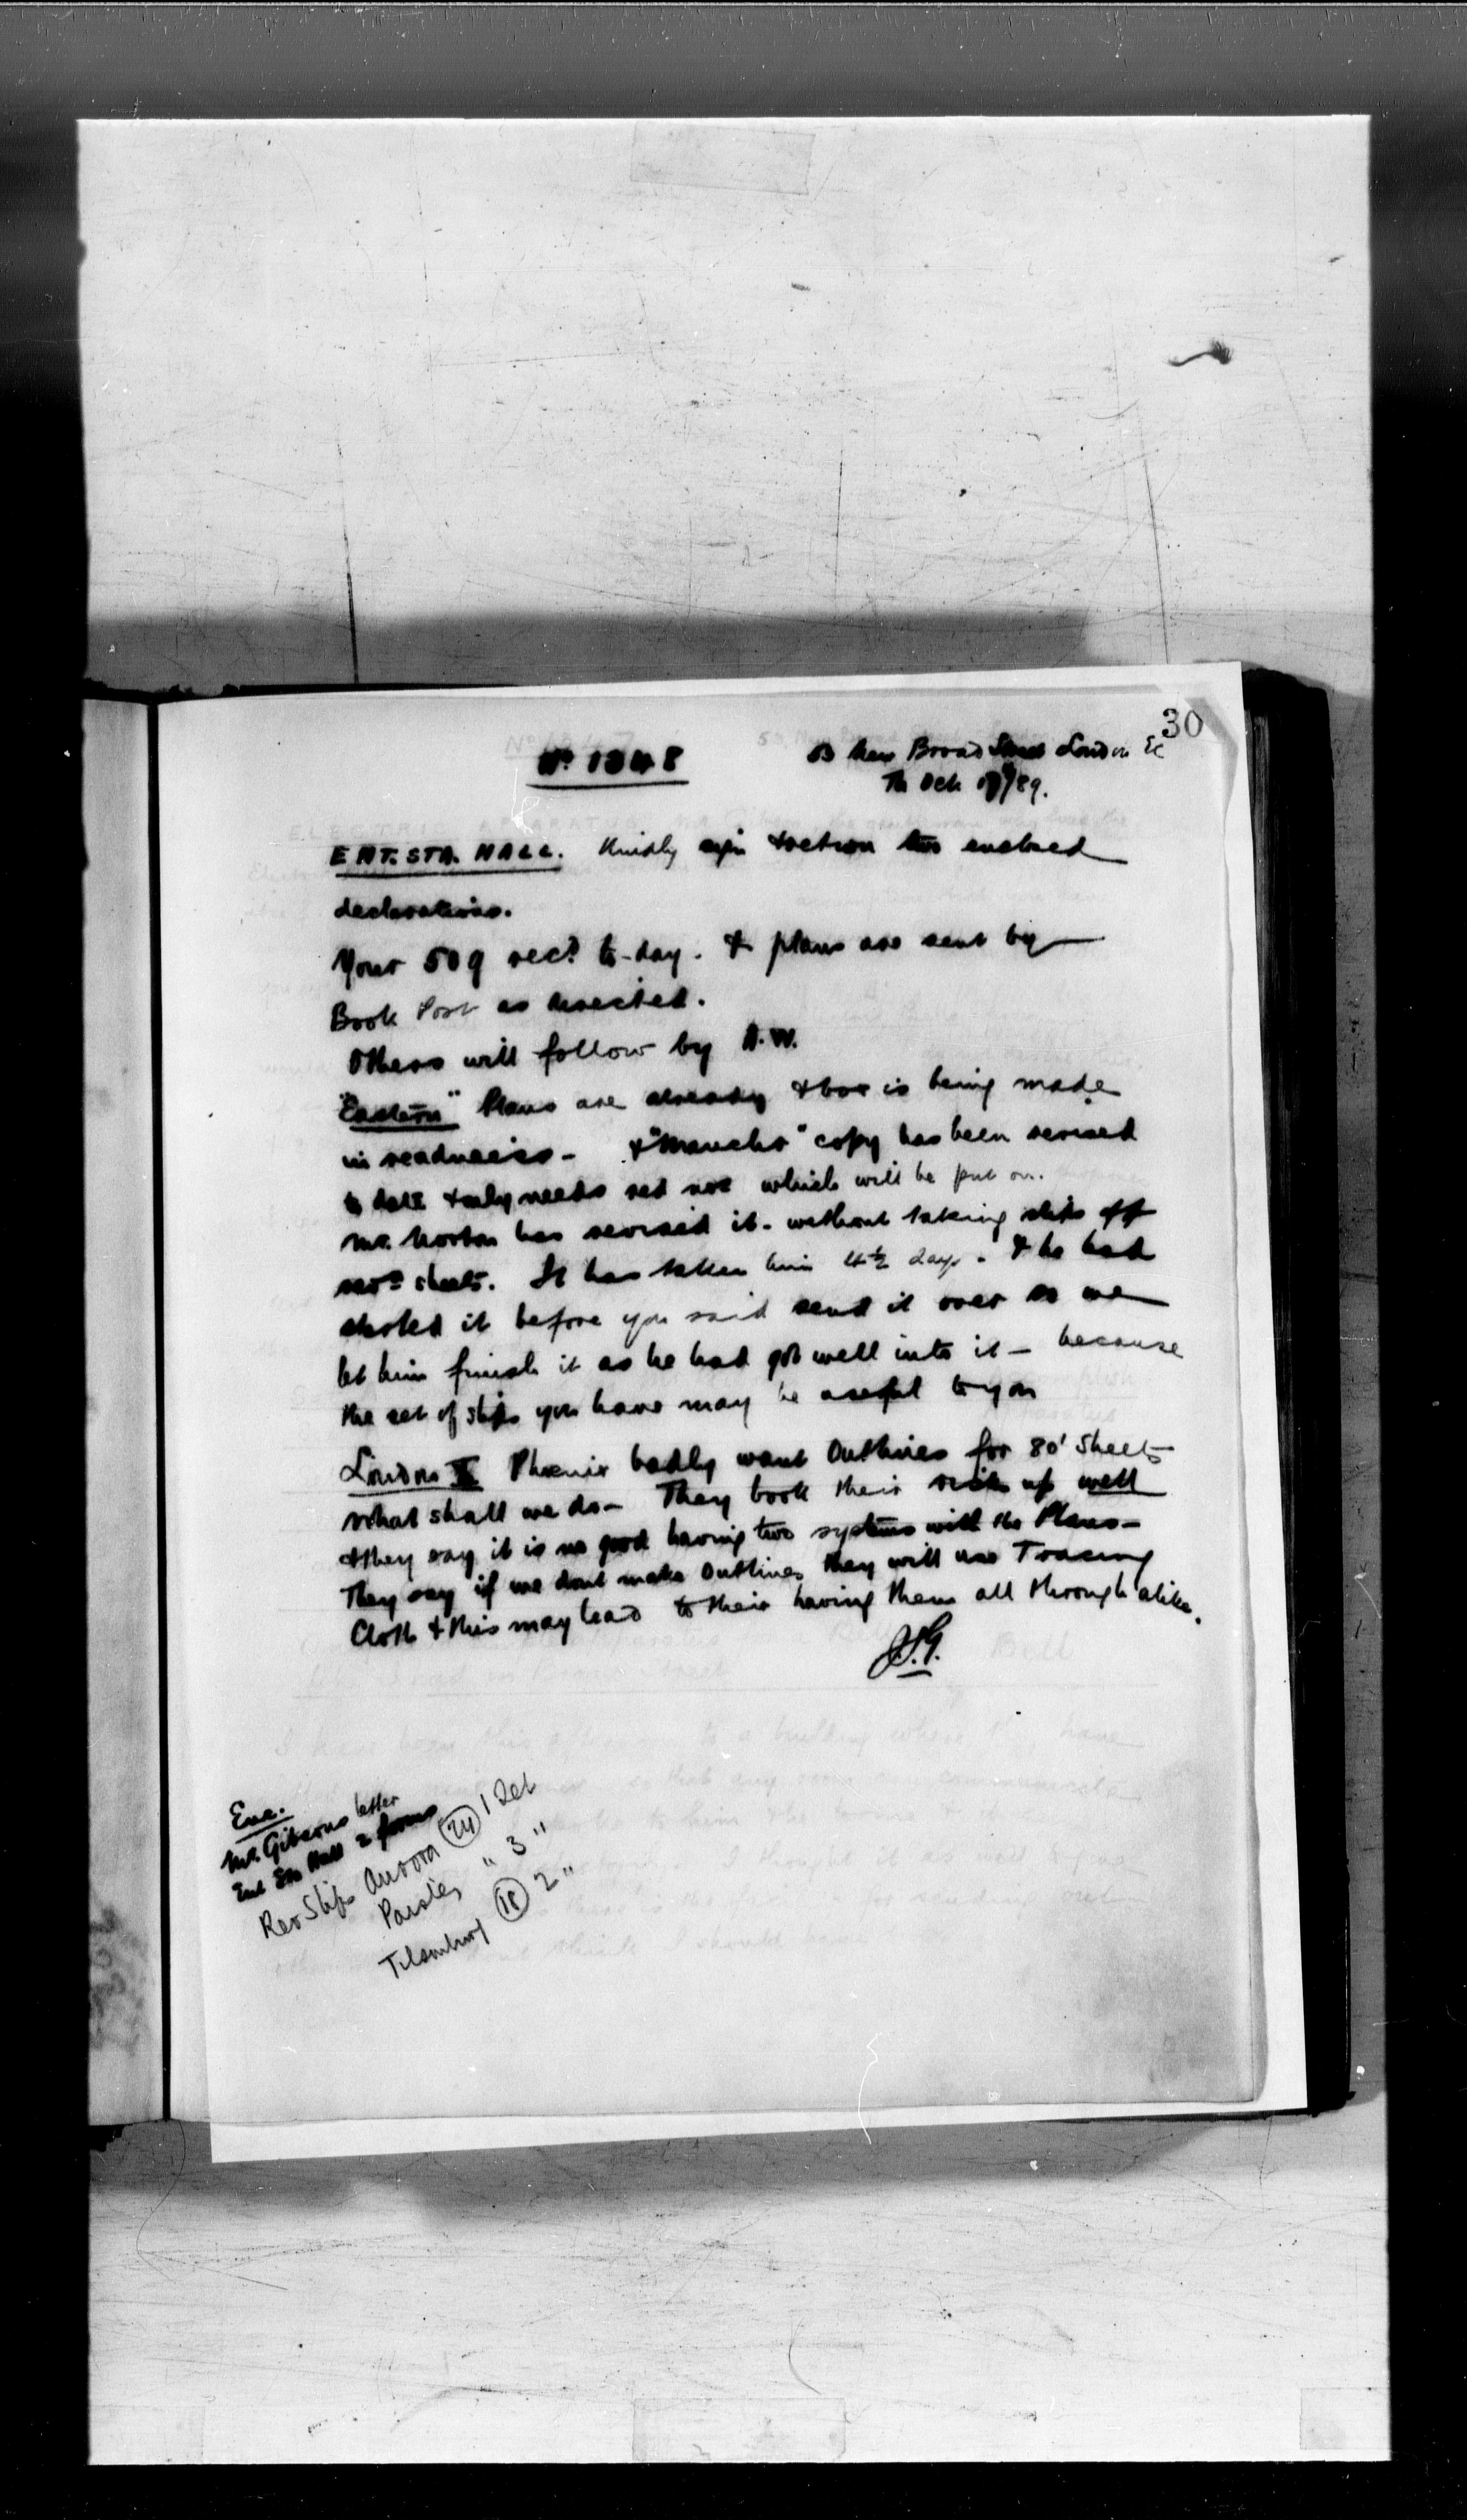 30
No 1348
53 New Broad Street London EC
Th Oct 17/89.
ENT. STA. HALL. Kindly sign & return two enclosed
declarations.
Your 509 recd to-day. & plans are sent by
Book Post as directed.
Others will follow by A.W.
"Eastern" Plans are already & box is being made
in readiness - & "Manchr" copy has been revised
to date & only needs red note which will be put on.
Mr. Norton has revised it - without taking slips off
revd sheets. It has taken him 4½ days. & he had
started it before you said send it over so we
let him finish it as he had got well into it - because
the set of slips you have may be useful to you
London II Phoenix badly want Outlines for 80' Sheets
what shall we do - They book their risks up well
& they say it is no good having two systems with the Plans -
They say if we dont make Outlines they will use Tracing
Cloth & this may lead to their having them all through alike.
J.G.
Enc.
Mr. Gibsons letter
Ent Sta Hall 2 forms
Rev Slips Aurora (24) 1 Set
Paisley " 3 "
(18) 2 "